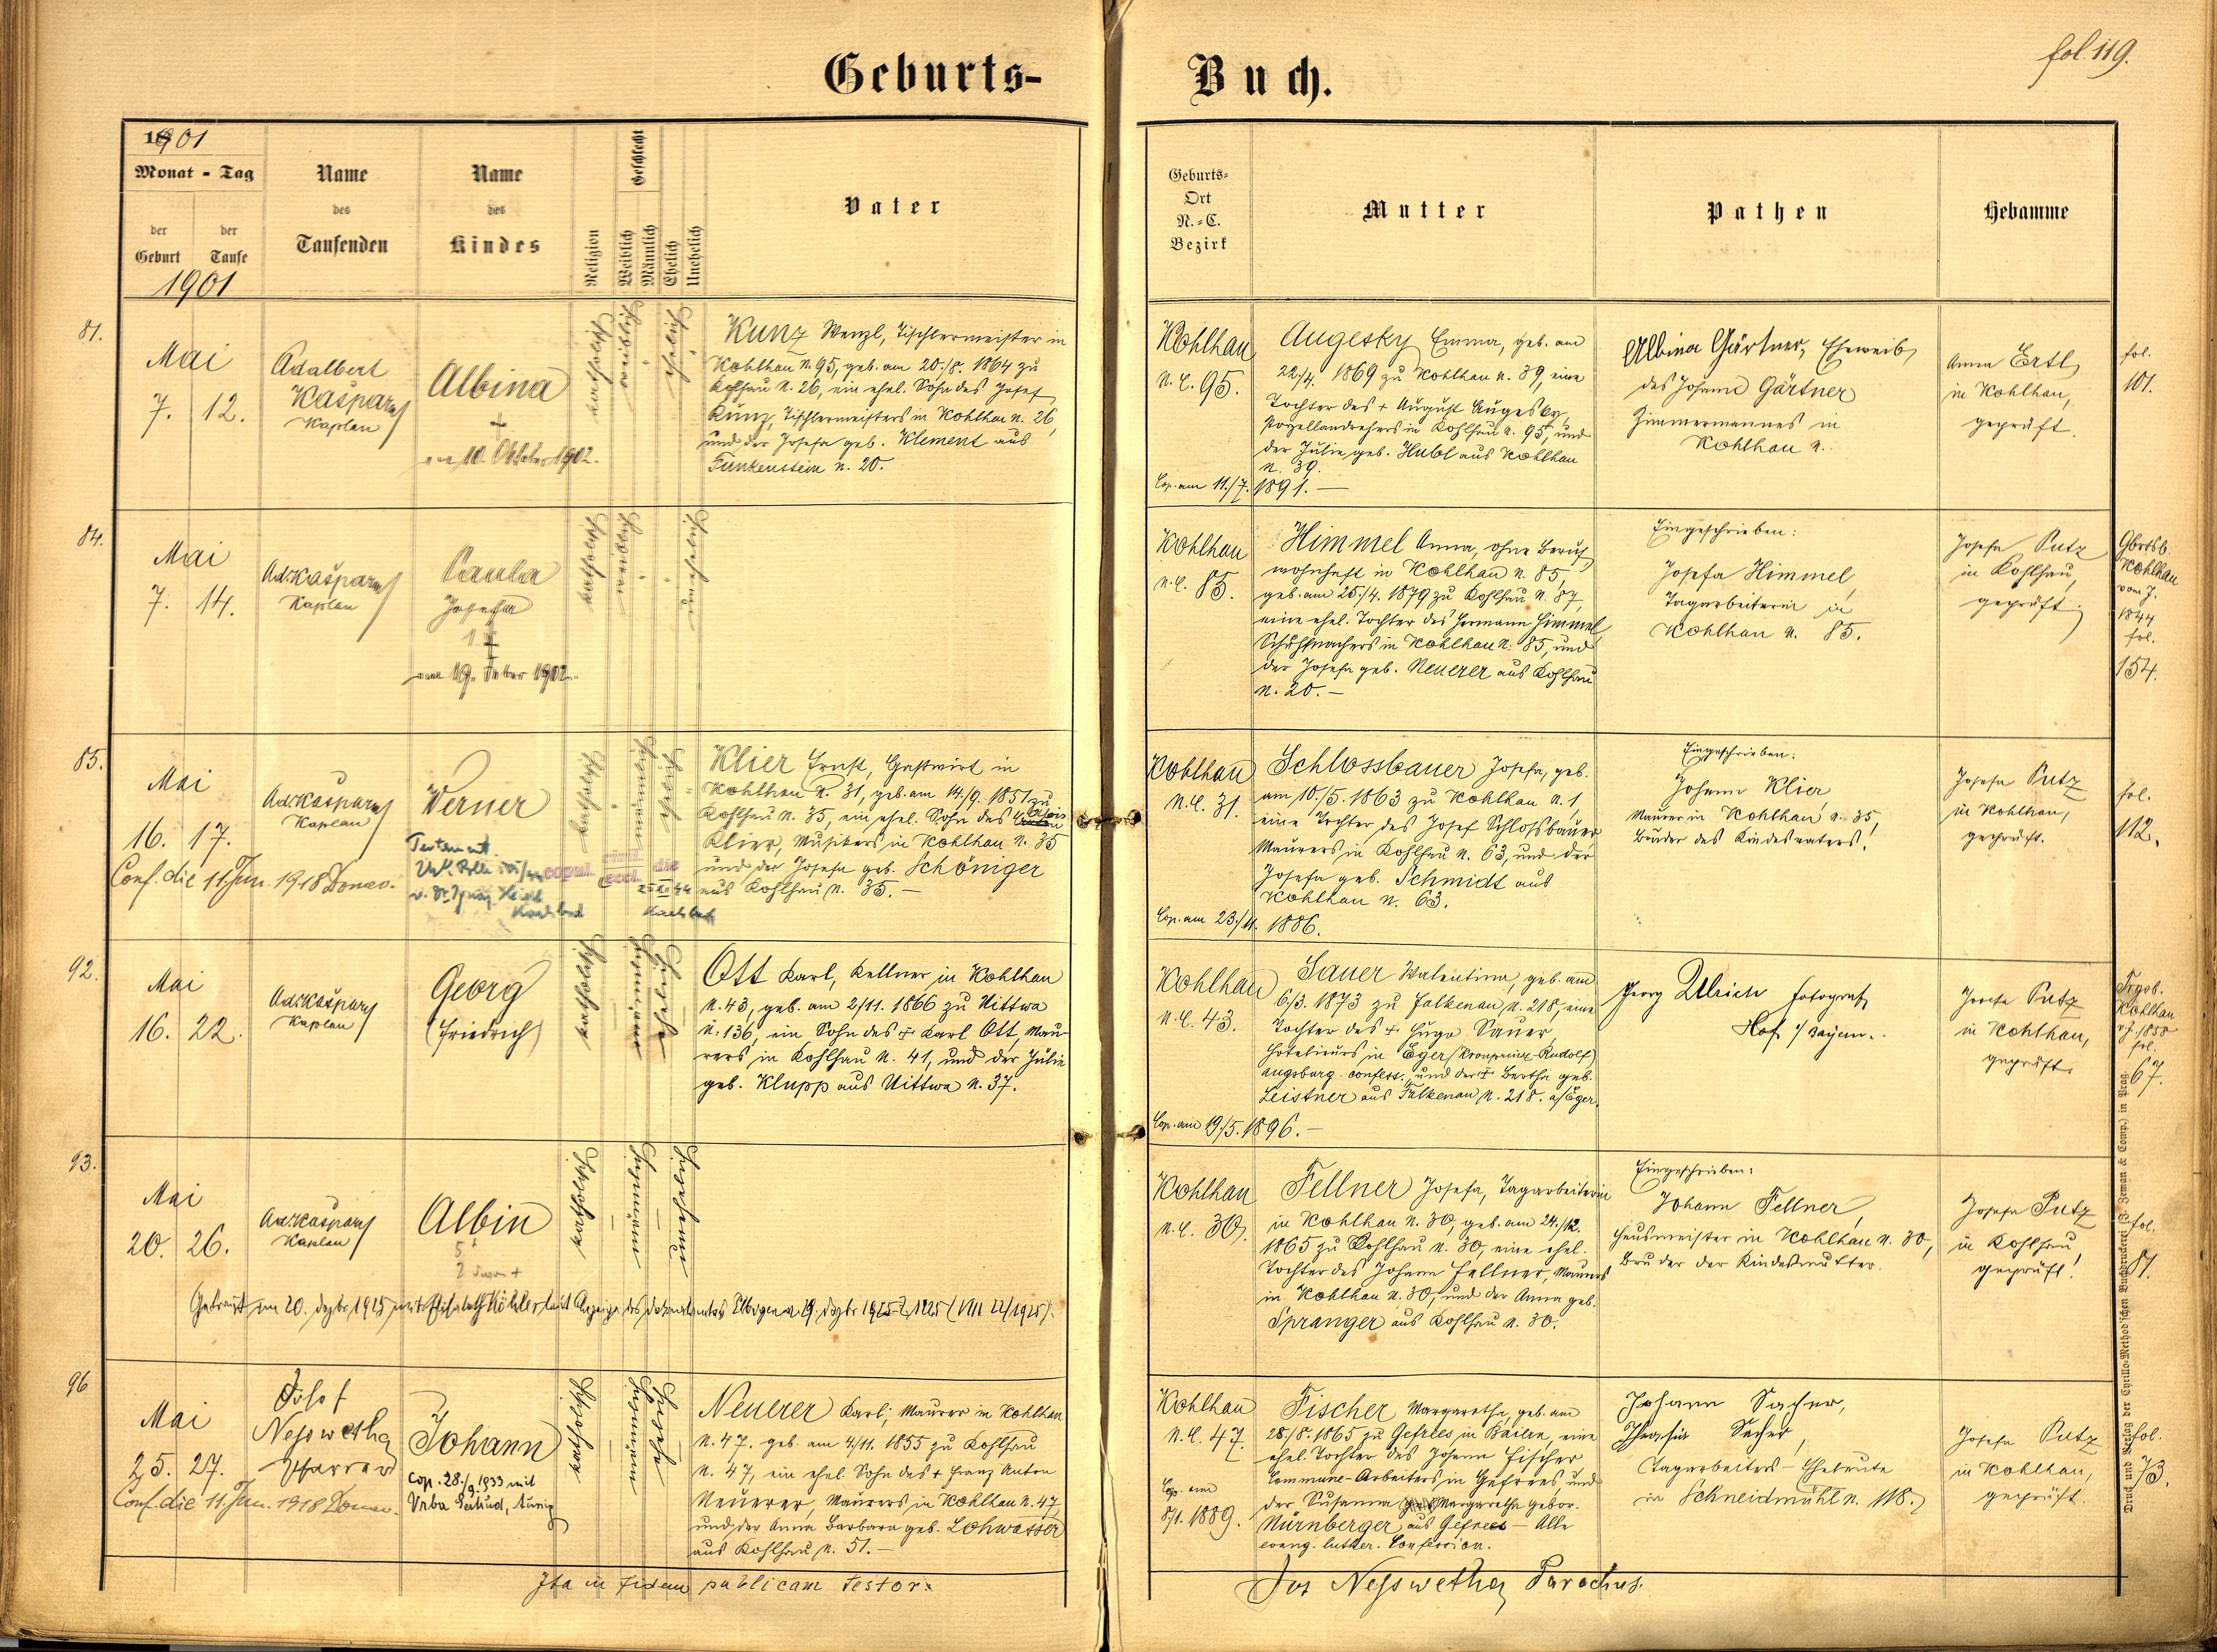 fol. 119.
Geburts-
Buch.
1901
Monat - Tag
der Geburt
der Taufe
1901
Name des Taufenden
Name des Kindes
Religion
Geschlecht
Weiblich
Männlich
Ehelich
Unehelich
Vater
Geburts-
Ort
N.-C.
Bezirk
Mutter
Pathen
Hebamme
81.
Mai
7. 12.
Adalbert
Kašpar
Kaplan
Albina
+
am 10. Oktober 1902.
katholisch
weiblich
ehelich
Kunz Wenzl, Tischlermeister in
Kohlhau N. 95, geb. am 20./8. 1864 zu
Kohlhau N. 26, ein ehel. Sohn des Josef
Kunz, Tischlermeisters in Kohlhau n. 26,
und der Josefa geb. Klement aus
Funkenstein n. 20.
Kohlhau
N. C. 95.
Augesky Emma, geb. am
22./4. 1869 zu Kohlhau n. 39, eine
Tochter des + August Augesky,
Porzellandrehers in Kohlhau n. 95, und
der Julie geb. Hubl aus Kohlhau
n. 39.
Cop. am 11./7. 1891. —
Albina Gärtner, Eheweib
des Johann Gärtner
Zimmermannes in
Kohlhau n.
Anna Ertl
in Kohlhau,
geprüft.
fol.
101.
84.
Mai
7. 14.
Ad. Kašpar
Kaplan
Paula
Josefa
+
am 19. 1902.
katholisch
weiblich
unehelich
Kohlhau
N. C. 85.
Himmel Anna, ohne Beruf,
wohnhaft in Kohlhau n. 85,
geb. am 25./4. 1879 zu Kohlhau N. 87,
eine ehel. Tochter des Hermann Himmel,
Schuhmachers in Kohlhau n. 85, und
der Josefa geb. Neuerer aus Kohlhau
n. 20. —
Eingeschrieben:
Josefa Himmel,
Tagarbeiterin in
Kohlhau n. 85.
Josefa Putz
in Kohlhau,
geprüft.
Gbrtsb.
Kohlhau
vom J.
1844
fol.
154.
85.
Mai
16. 17.
Conf. die 11. Jun. 1918 Donav.
Ad. Kašpar
Kaplan
Werner
Karlsbad
copul. civil. eccl. die
Karlsbad
katholisch
männlich
ehelich
Klier Ernst, Gastwirt in
Kohlhau N. 31, geb. am 14./9. 1851 zu
Kohlhau N. 35, ein ehel. Sohn des Alois
Klier, Musikers in Kohlhau n. 35
und der Josefa geb. Schöniger
aus Kohlhau n. 35. —
Kohlhau
N. C. 31.
Schlossbauer Josefa, geb.
am 10./5. 1863 zu Kohlhau n. 1
eine Tochter des Josef Schlossbauer
Maurers in Kohlhau n. 63, und der
Josefa geb. Schmidt aus
Kohlhau n. 63.
Cop. am 23./11. 1886.
Eingeschrieben:
Johann Klier,
Maurer in Kohlhau n. 35,
Bruder des Kindesvaters!
Josefa Putz
in Kohlhau,
geprüft.
fol.
112.
92.
Mai
16. 22.
Ad. Kašpar
Kaplan
Georg
(Friedrich)
katholisch
männlich
ehelich
Ott Karl, Kellner in Kohlhau
N. 43, geb. am 2/11. 1866 zu Nittwa
n. 136, ein Sohn des + Karl Ott, Mau-
rers in Kohlhau n. 41, und der Julie
geb. Klupp aus Nittwa n. 37.
Kohlhau
N. C. 43.
Sauer Walentina, geb. am
6./3. 1873 zu Falkenau n. 218, eine
Tochter des + Hugo Sauer,
Hoteliers in Eger (Kronprinz Rudolf)
augsburg. confess., und der + Bertha geb.
Leistner aus Falkenau n. 218. a/Eger.
Cop. am 19./5. 1896. —
Georg Ulrich Fotograf,
Hof i/ Bayern.
Josefa Putz
in Kohlhau,
geprüft.
Kohlhau
fol.
67.
93.
Mai
20. 26.
Ad. Kašpar
Kaplan
Albin
katholisch
männlich
unehelich
Kohlhau
N. C. 30.
Fellner Josefa, Tagarbeiterin
in Kohlhau n. 30, geb. am 24./12.
1865 zu Kohlhau n. 30, eine ehel.
Tochter des Johann Fellner, Maurers
in Kohlhau n. 30, und der Anna geb.
Spranger aus Kohlhau n. 30.
Eingeschrieben:
Johann Fellner,
Hausmeister in Kohlhau n. 30,
Bruder der Kindesmutter.
Josefa Putz
in Kohlhau,
geprüft!
fol.
81.
Getraut am 20. Dezbr. 1925 mit Elisabeth Köhler laut Anzeige des Dekanalamtes Elbogen
96
Mai
25. 27.
Conf. die 11. Jun. 1918 Donav.
Josef
Nesswetha
Pfarrer
Johann
cop. 28./9. 1933 mit
Vrba Gertrud, Aussig
katholisch
männlich
ehelich
Neuerer Karl, Maurer in Kohlhau
N. 47. geb. am 4/11. 1855 zu Kohlhau
n. 47, ein ehel. Sohn des + Franz Anton
Neuerer, Maurers, in Kohlhau n. 47
und der Anna Barbara geb. Lohwasser
aus Kohlhau n. 51. —
Kohlhau
N. C. 47.
Cop. am
8/1. 1889.
Fischer Margaretha, geb. am
28./8. 1865 zu Gefrees in Baiern, eine
ehel. Tochter des Johann Fischer
Commune-Arbeiters in Gefrees, und
der Susanna Margaretha gebor.
Nürnberger aus Gefrees — Alle
evang. luther. Confession.
Johann Sacher,
Theresia Sacher,
Tagarbeiters-Eheleute
in Schneidmühl n. 118.
Josefa Putz
in Kohlhau,
geprüft.
fol.
73.
Ita in fidem publicam testor:
Jos Nesswetha Parochus.
Druck und Verlag der Cyrillo-Method'schen Buchdruckerei (J. Zeman & Comp.) in Prag.